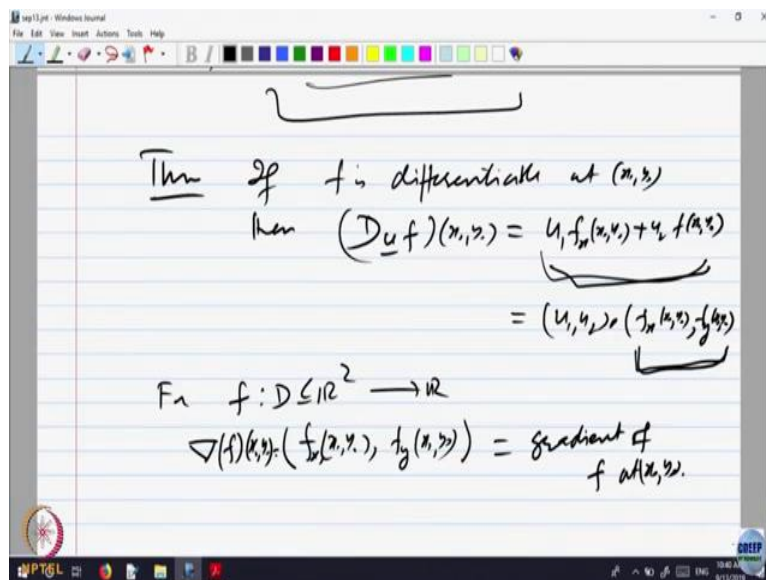 sep13.jnt - Windows Journal
File Edit View Insert Actions Tools Help
B I
Thm If f is differentiable at (x₀, y₀)
then (D_u f)(x₀, y₀) = u₁ f_x(x₀, y₀) + u₂ f(x₀, y₀)
= (u₁, u₂) • (f_x(x₀, y₀), f_y(x₀, y₀))
For f : D ⊆ ℝ² → ℝ
∇(f)(x₀, y₀) = (f_x(x₀, y₀), f_y(x₀, y₀)) = gradient of
f at (x₀, y₀).
NPTEL
CDEEP
ENG
10:40 A
9/13/2019